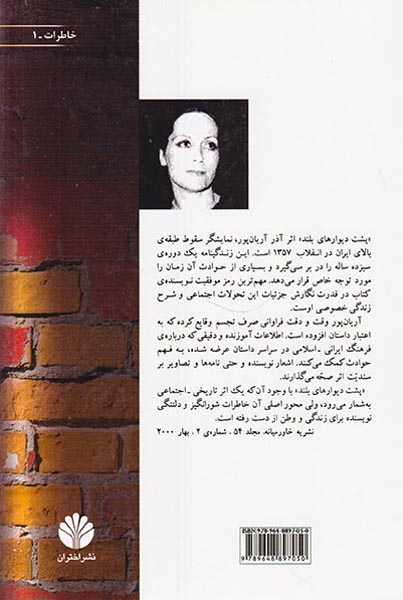 خاطرات - ۱
«پشت دیوارهای بلند» اثر آذر آریان‌پور، نمایشگر سقوط طبقه‌ی
بالای ایران در انقلاب ۱۳۵۷ است. این زندگینامه یک دوره‌ی
سیزده ساله را در بر می‌گیرد و بسیاری از حوادث آن زمان را
مورد توجه خاص قرار می‌دهد. مهم‌ترین رمز موفقیت نویسنده‌ی
کتاب در قدرت نگارش جزئیات این تحولات اجتماعی و شرح
زندگی خصوصی اوست.
آریان‌پور وقت و دقت فراوانی صرف تجسم وقایع کرده که به
اعتبار داستان افزوده است. اطلاعات آموزنده و دقیقی که درباره‌ی
فرهنگ ایرانی - اسلامی در سراسر داستان عرضه شده، به فهم
حوادث کمک می‌کنند. اشعار نویسنده و حتی نامه‌ها و تصاویر بر
سندیّت اثر صحّه می‌گذارند.
«پشت دیوارهای بلند» با وجود آن‌که یک اثر تاریخی - اجتماعی
به‌شمار می‌رود، ولی محور اصلی آن خاطرات شورانگیز و دلتنگی
نویسنده برای زندگی و وطن از دست رفته است.
نشریه خاورمیانه. مجلد ۵۴ . شماره‌ی ۲ . بهار ۲۰۰۰
ISBN: 978-964-8897-05-0
9789648897050
نشر اختران